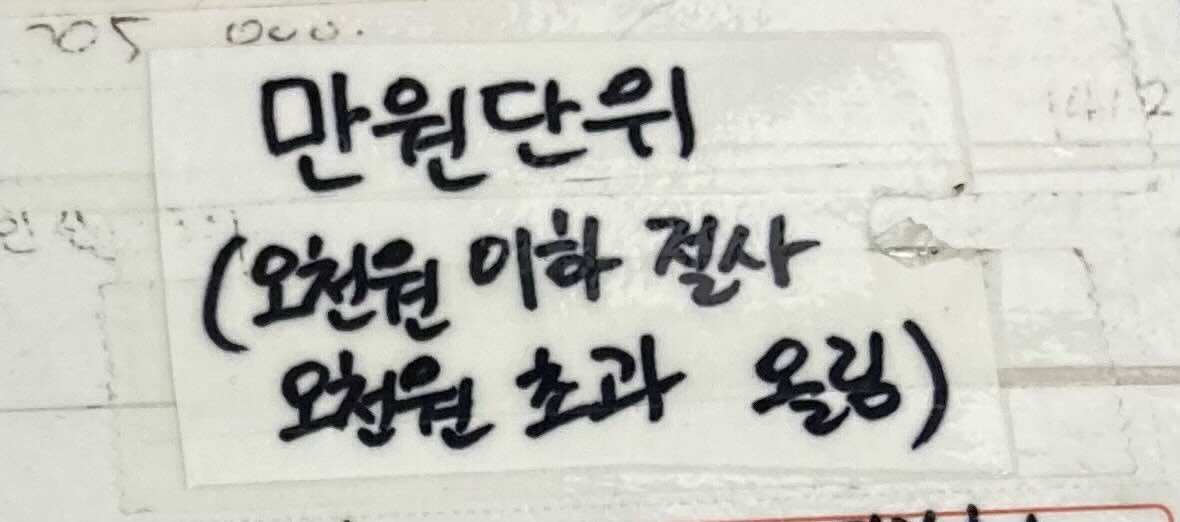 205 000.
만원단위
(오천원 이하 절사
오천원 초과 올림)